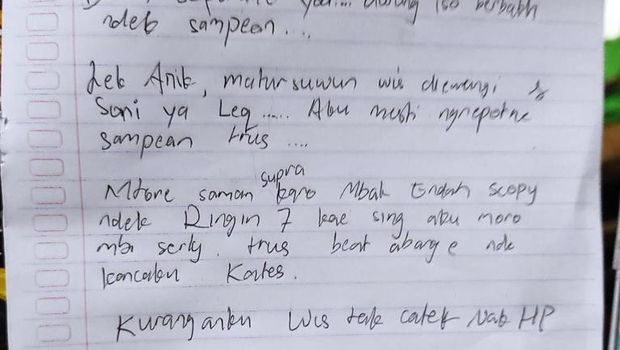 ndek sampean....
Lek Anik, matursuwun wis direwangi &
Soni ya Lek..... Aku mesti ngrepotne
sampean trus ....
Mtore saman supra karo Mbak Endah scopy
ndek Ringin 7 kae sing aku moro
mbi serly. trus beat abang e nde
kancaku Kates.
Kuranganku Wis tak catet Nak HP